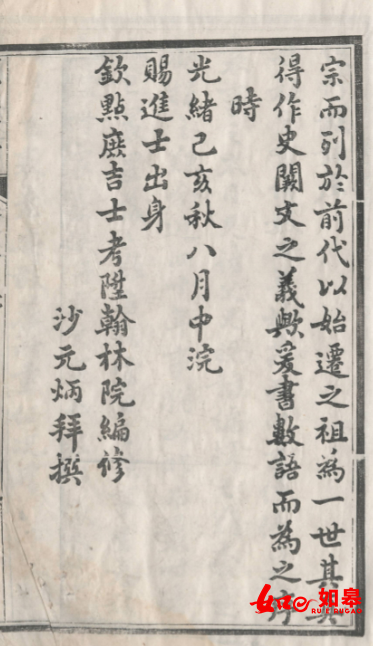 宗而列於前代以始遷之祖為一世其
得作史闕文之義歟爰書數語而為之序
時
光緒己亥秋八月中浣
賜進士出身
欽點庶吉士考陞翰林院編修
沙元炳拜撰
如皋
RUEDUGAO